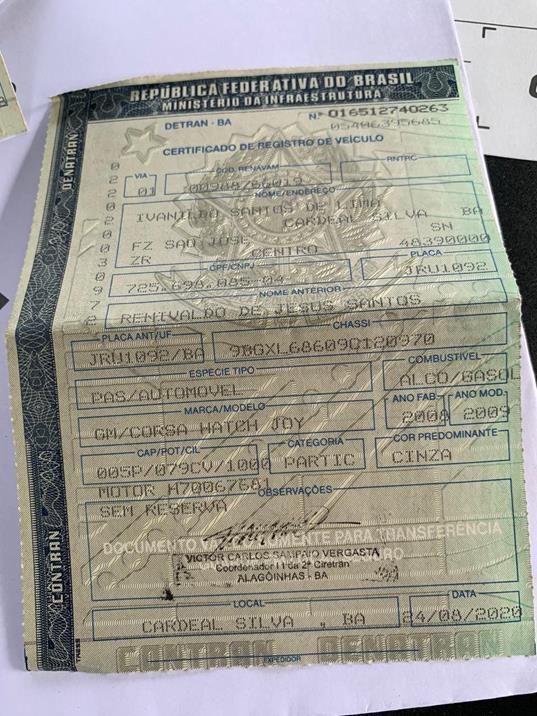 REPÚBLICA FEDERATIVA DO BRASIL
MINISTÉRIO DA INFRAESTRUTURA
DETRAN - BA
N.º 016512740263
05406395685
CERTIFICADO DE REGISTRO DE VEÍCULO
VIA
CÓD. RENAVAM
RNTRC
01
NOME/ENDEREÇO
IVANILDO SANTOS DE LIMA
CARDEAL SILVA BA
FZ SAO JOSE SN
ZR CENTRO 48390000
CPF/CNPJ
PLACA
725.698.885-04
JRU1092
NOME ANTERIOR
RENIVALDO DE JESUS SANTOS
PLACA ANT/UF
CHASSI
JRU1092/BA
9BGXL68609C120970
ESPÉCIE TIPO
COMBUSTÍVEL
PAS/AUTOMOVEL
ALCO/GASOL
MARCA/MODELO
ANO FAB.
ANO MOD.
GM/CORSA HATCH JOY
2008
2009
CAP/POT/CIL
CATEGORIA
COR PREDOMINANTE
005P/079CV/1000
PARTIC
CINZA
MOTOR M70067681
OBSERVAÇÕES
SEM RESERVA
DOCUMENTO
PARA TRANSFERÊNCIA
VICTOR CARLOS SAMPAIO VERGASTA
Coordenador II da 2ª Ciretran
ALAGOINHAS - BA
LOCAL
DATA
CARDEAL SILVA , BA
24/08/2020
CONTRAN DENATRAN
EXPEDIDOR
DENATRAN
CONTRAN